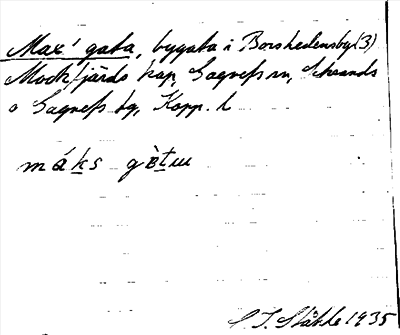 Max' gata, bygata i Borshedensby (3)
Mockfjärds kap, Gagnefs sn, Strands
o Gagnefs tg, Kopp. l
máks gòtɯ
C. I. Ståhle 1935